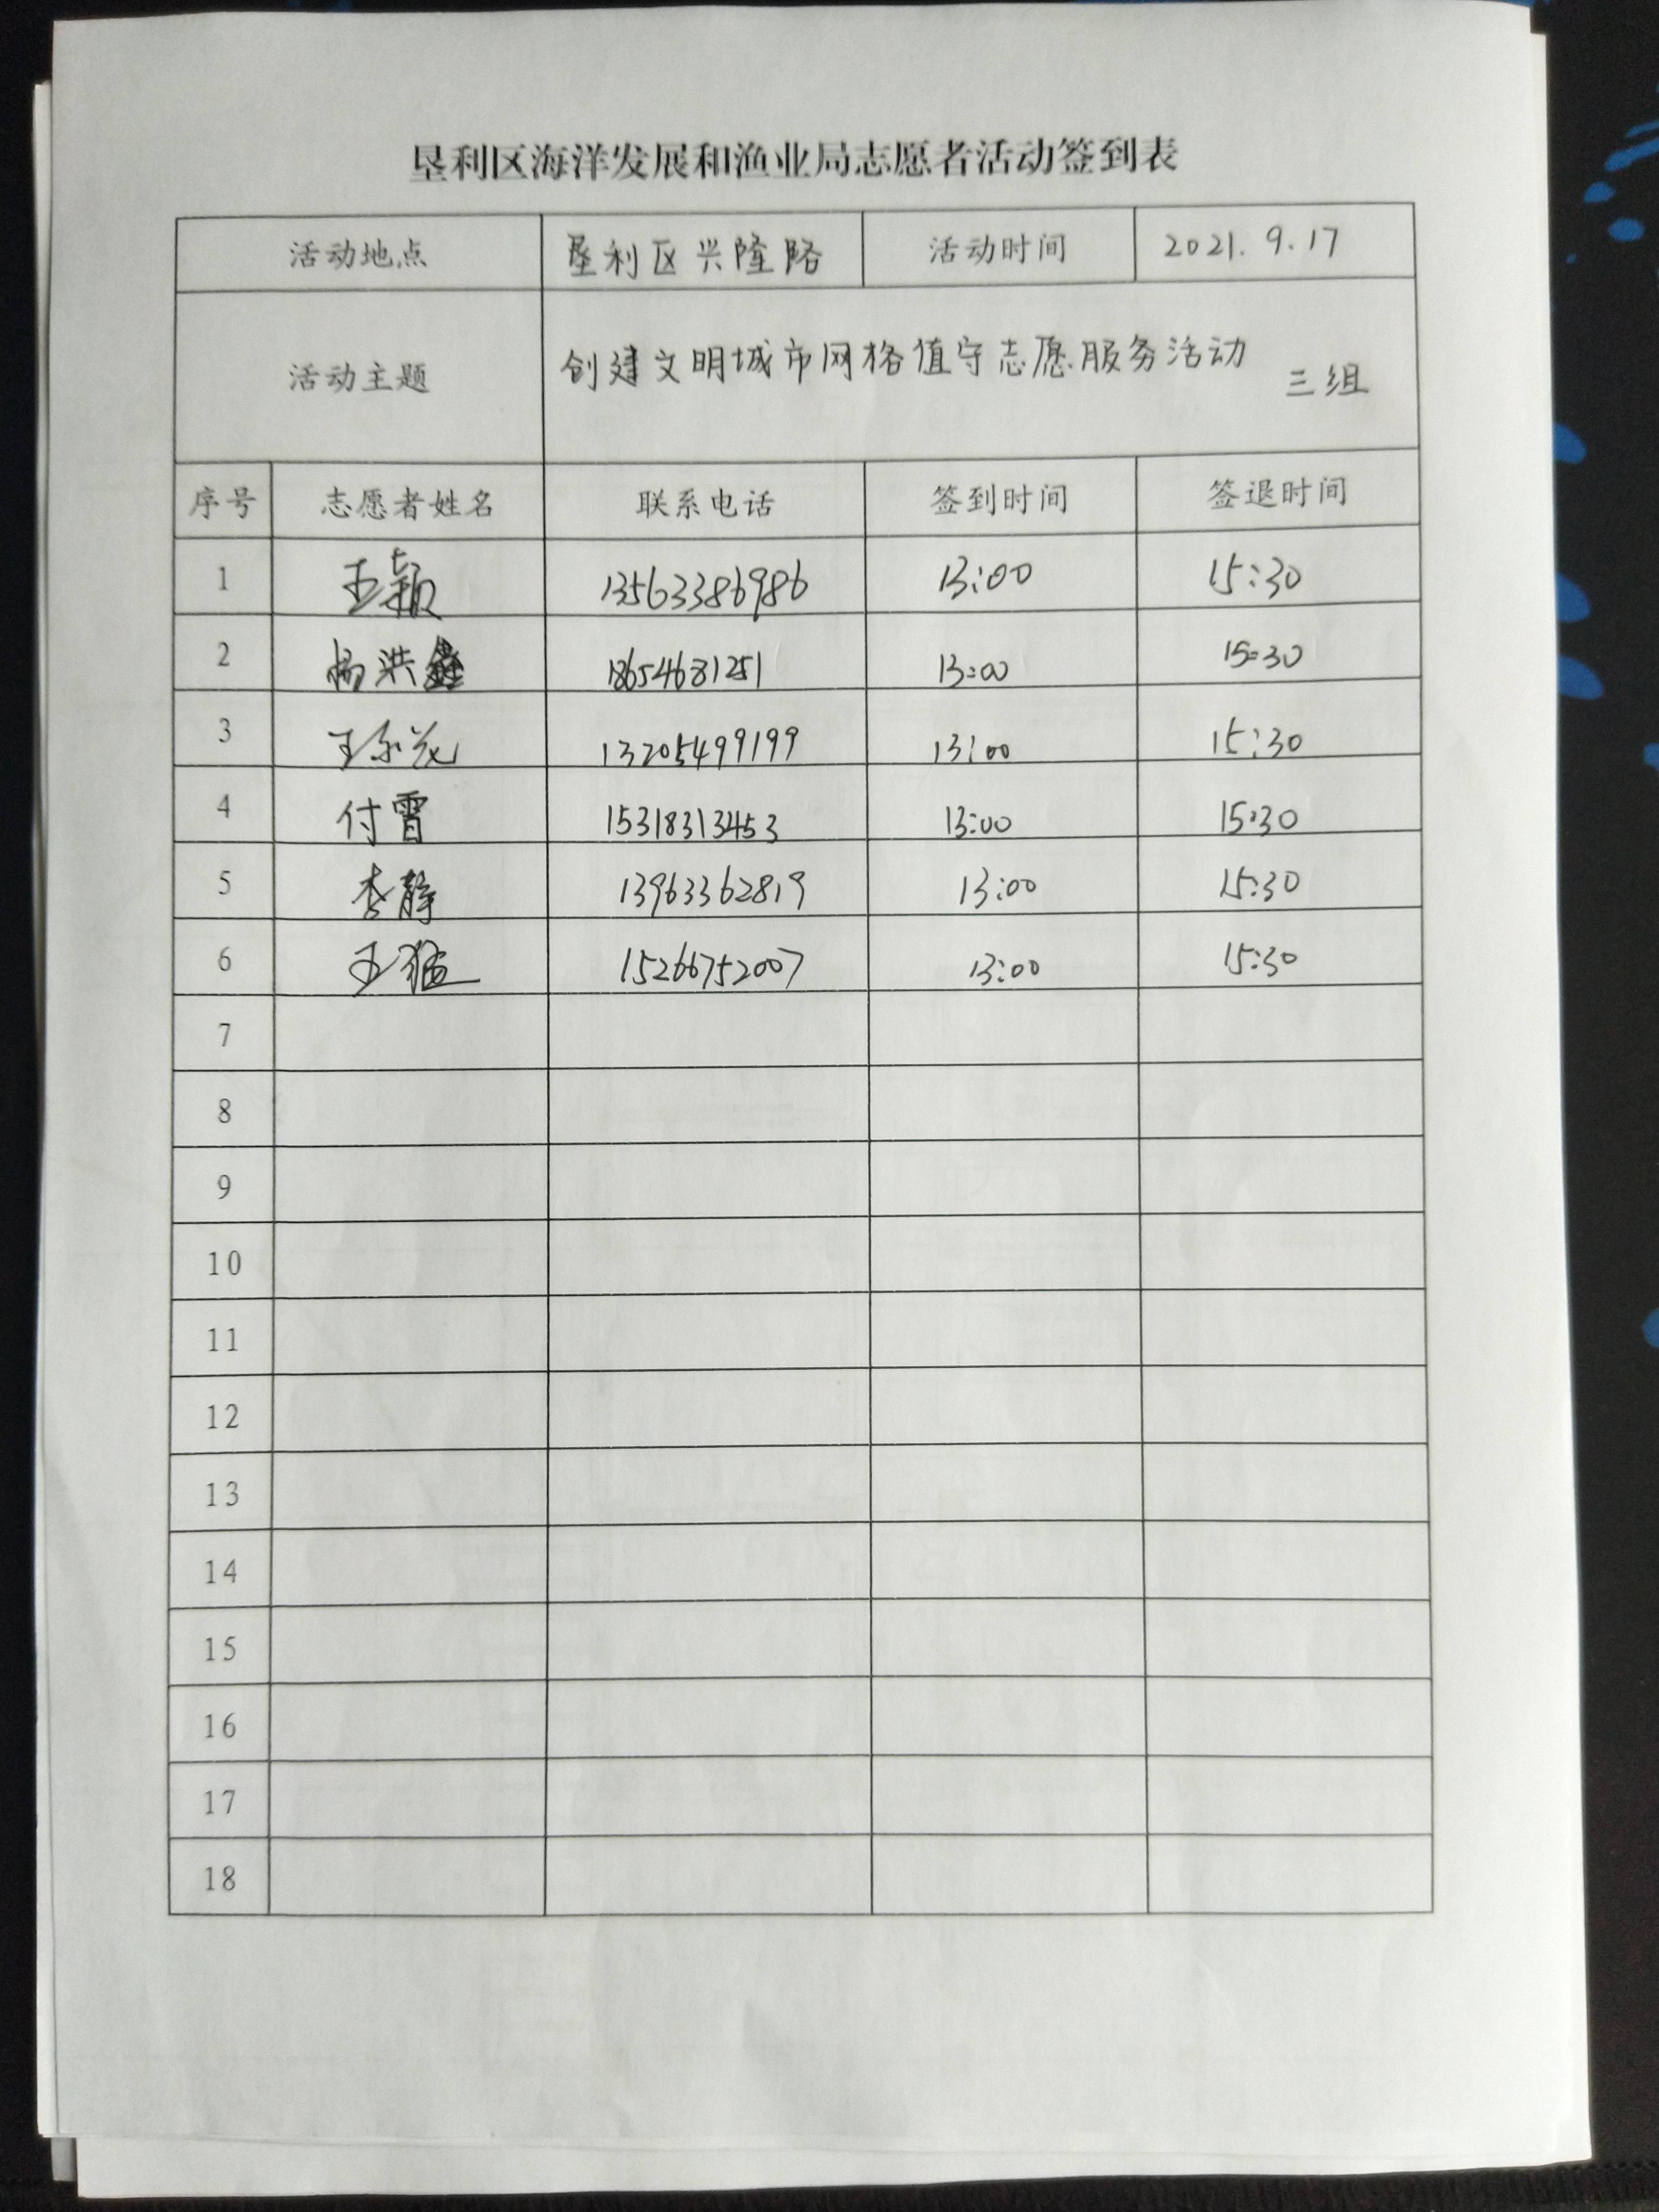 垦利区海洋发展和渔业局志愿者活动签到表
活动地点 垦利区兴隆路 活动时间 2021.9.17
活动主题 创建文明城市网格值守志愿服务活动 三组
序号 志愿者姓名 联系电话 签到时间 签退时间
1 王颖 13563386986 13:00 15:30
2 杨洪鑫 18654681251 13:00 15:30
3 王 13205499199 13:00 15:30
4 付霄 15318313453 13:00 15:30
5 李静 13963362819 13:00 15:30
6 王猛 15266752007 13:00 15:30
7
8
9
10
11
12
13
14
15
16
17
18